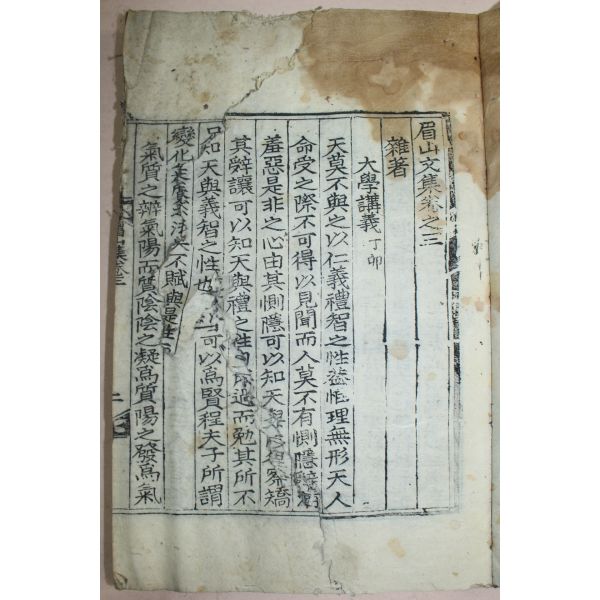 眉山文集卷之三
雜著
大學講義 丁卯
天莫不與之以仁義禮智之性益恒理無形天人
命受之際不可得以見聞而人莫不有惻隱辭讓
羞惡是非之心由其惻隱可以知天與
其辭讓可以知天與禮之性 而勉其所不
知天與義智之性也 可以爲賢程夫子所謂
變化 不賦與是性
氣質之辨氣陽而質陰陰之凝爲質陽之發爲氣